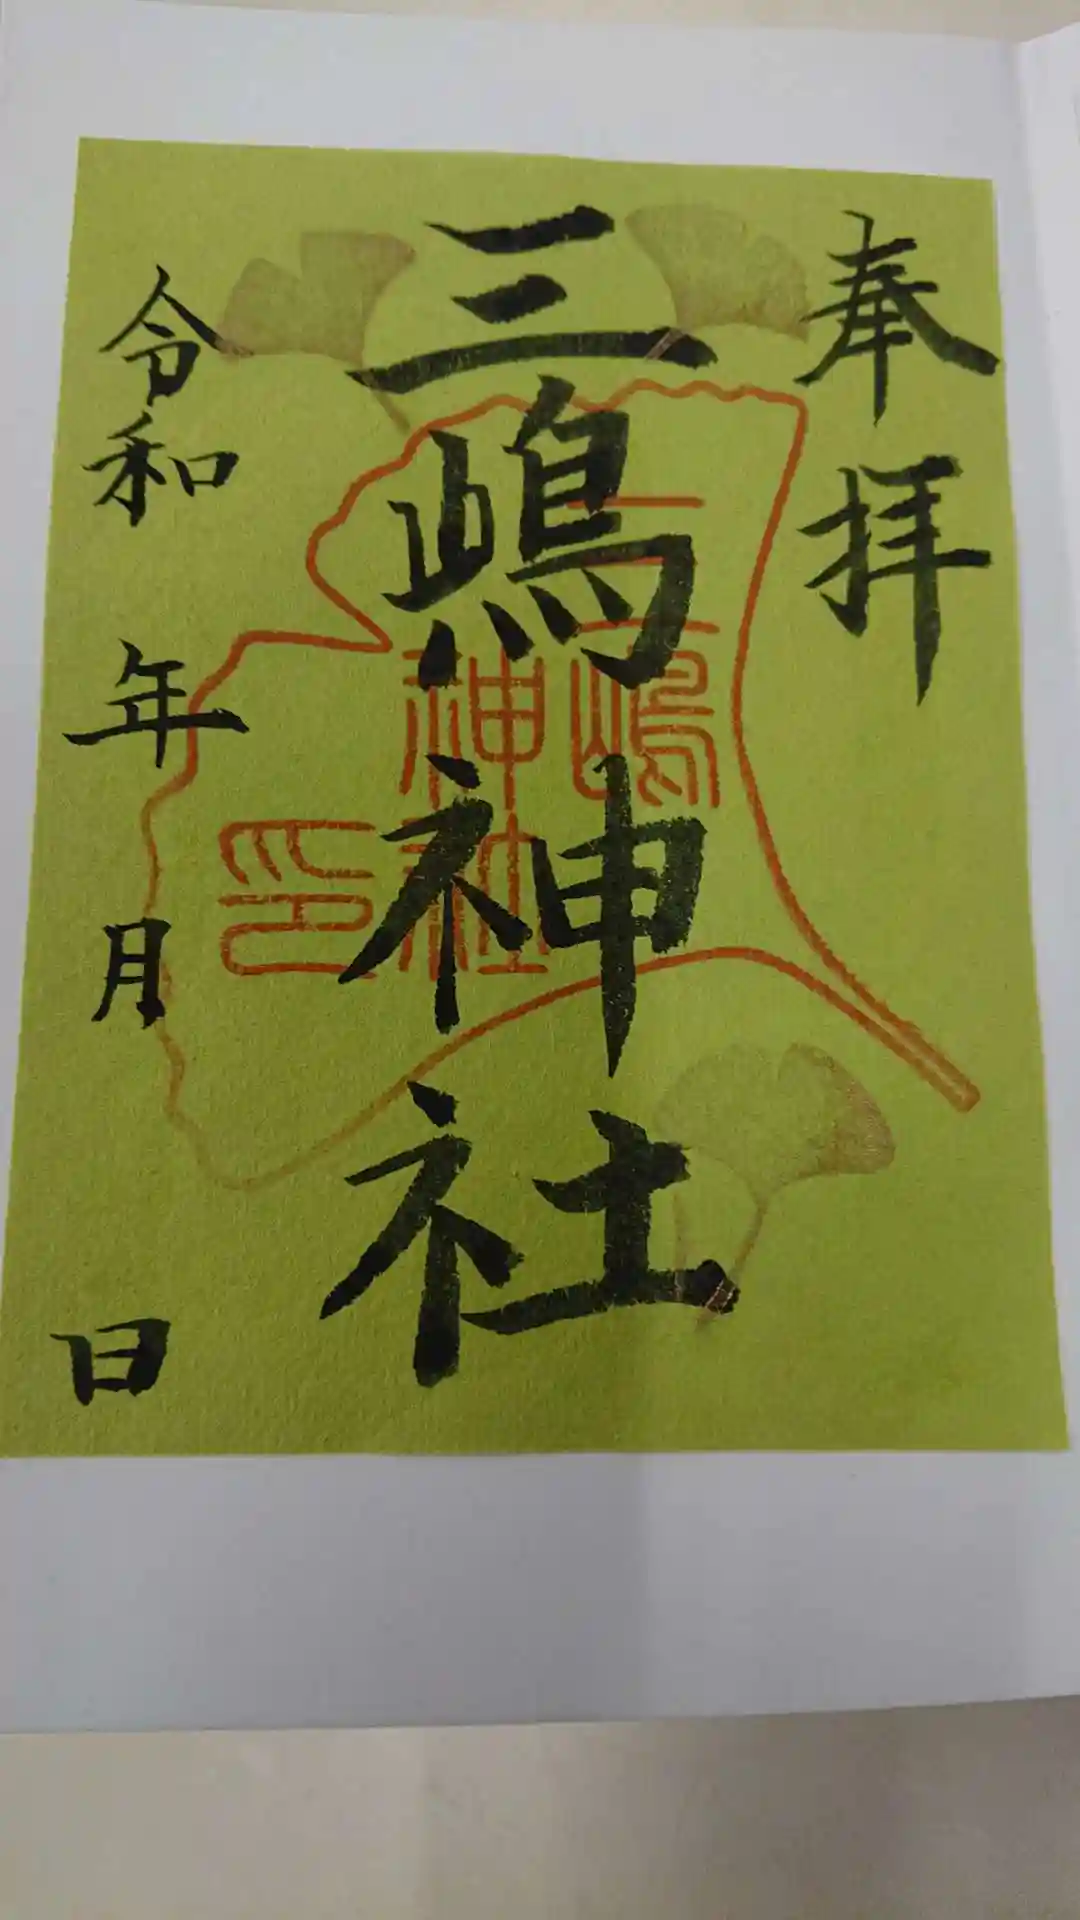 奉拝
三嶋神社
三嶋神社印
令和 年 月 日